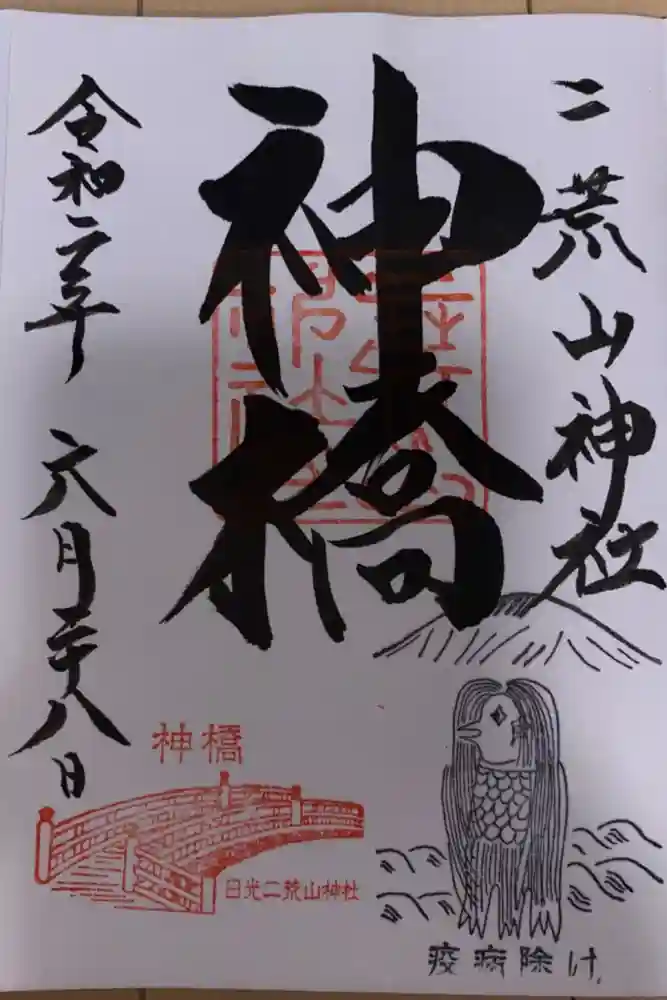 二荒山神社
神橋
令和二年 六月二十八日
神橋
日光二荒山神社
疫病除け